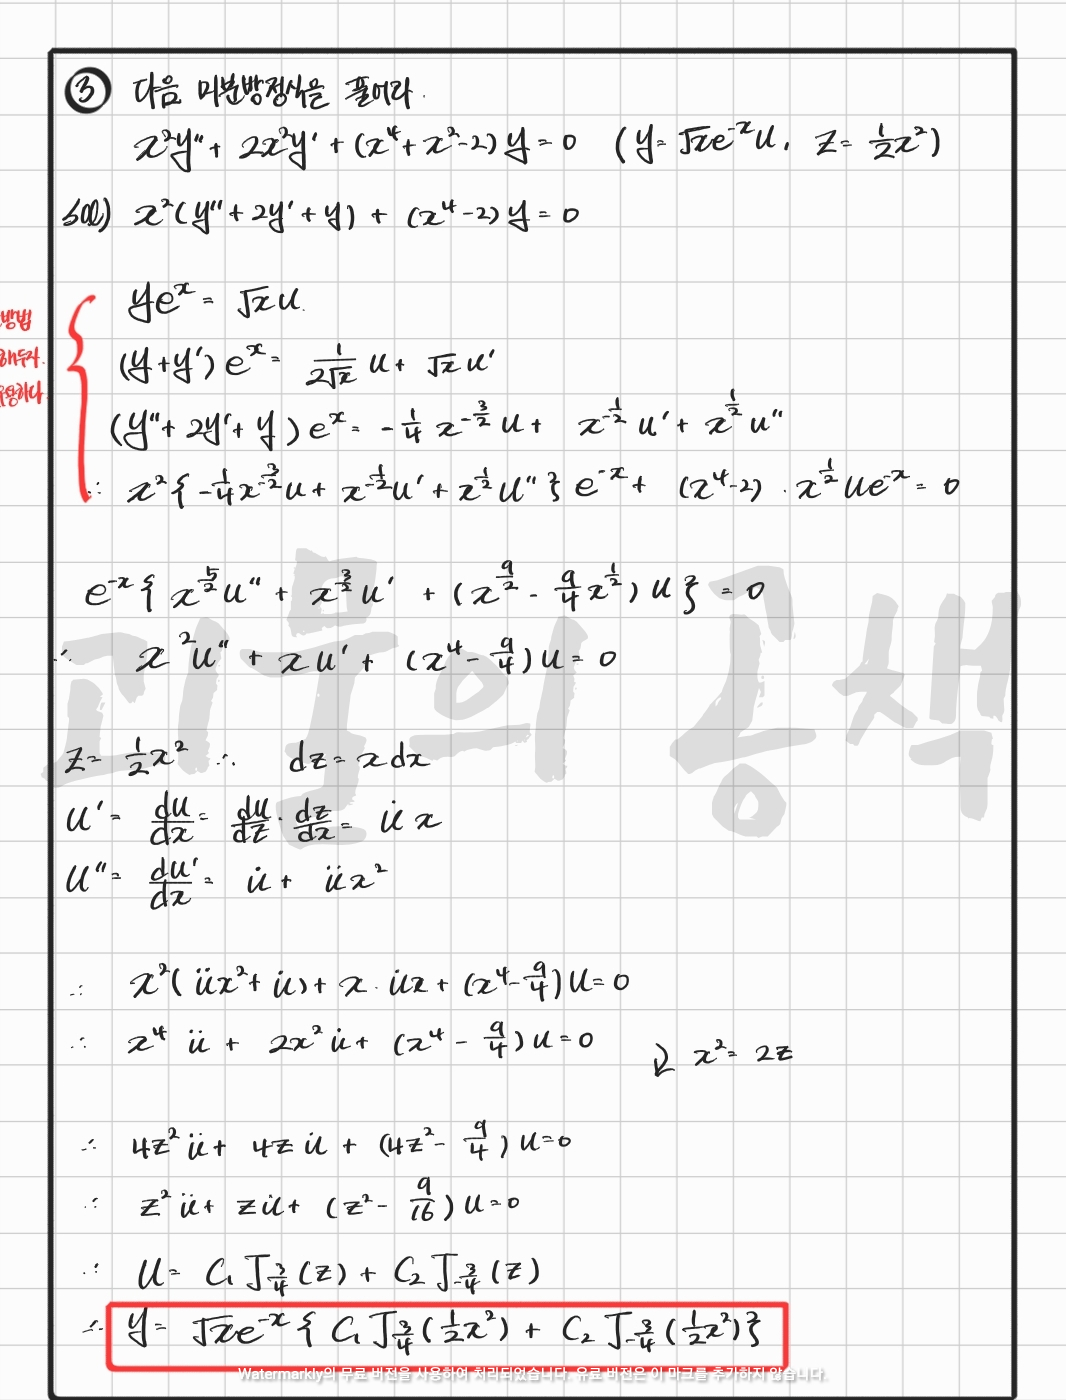 ③ 다음 미분방정식을 풀어라.
x²y'' + 2x²y' + (x⁴+x²-2)y = 0 (y=√x e^-x u, z= 1/2 x²)
sol) x²(y''+2y'+y) + (x⁴-2)y = 0
ye^x = √x u.
방법
(y+y')e^x = 1/(2√x) u + √x u'
해두자.
용하다
(y''+2y'+y)e^x = -1/4 x^(-3/2) u + x^(-1/2) u' + x^(1/2) u''
∴ x²{-1/4 x^(-3/2) u + x^(-1/2) u' + x^(1/2) u''}e^-x + (x⁴-2)·x^(1/2) u e^-x = 0
e^-x{x^(5/2) u'' + x^(3/2) u' + (x^(9/2) - 9/4 x^(1/2)) u} = 0
∴ x²u'' + xu' + (x⁴ - 9/4)u = 0
괴물의 공책
z = 1/2 x² ∴ dz = x dx
u' = du/dx = du/dz · dz/dx = u̇ x
u'' = du'/dx = u̇ + ü x²
∴ x²(ü x² + u̇) + x·u̇ x + (x⁴ - 9/4)u = 0
∴ x⁴ ü + 2x² u̇ + (x⁴ - 9/4)u = 0
↓ x² = 2z
∴ 4z² ü + 4z u̇ + (4z² - 9/4)u = 0
∴ z² ü + z u̇ + (z² - 9/16)u = 0
∴ u = C₁ J_(3/4)(z) + C₂ J_(-3/4)(z)
∴ y = √x e^-x {C₁ J_(3/4)(1/2 x²) + C₂ J_(-3/4)(1/2 x²)}
Watermarkly의 무료 버전을 사용하여 처리되었습니다. 유료 버전은 이 마크를 추가하지 않습니다.